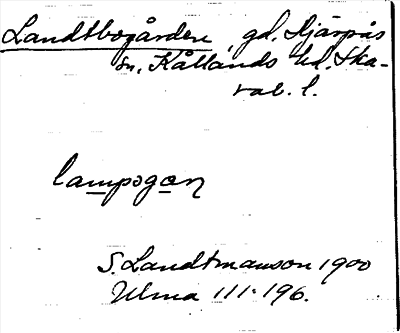 Landtbogården, gd. Njärpås
sn, Kållands hd. Ska-
rab. l.
lampogan
S. Landtmanson 1900
Ulma 111:196.